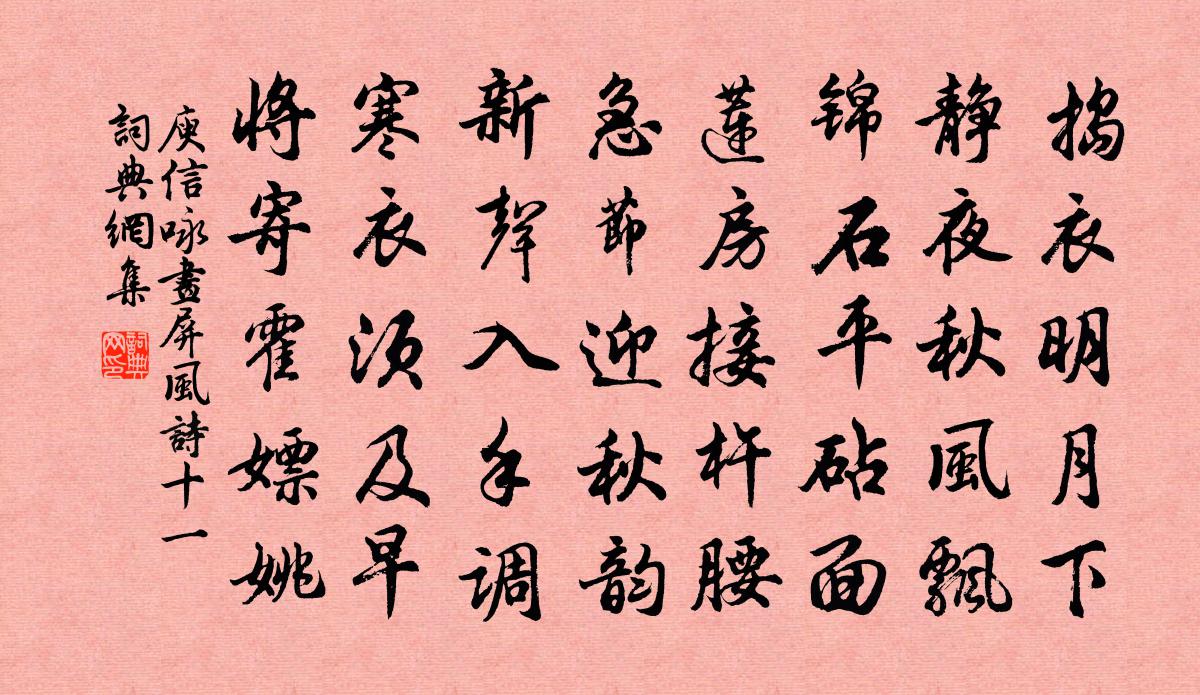 搗衣明月下
静夜秋風飄
锦石平砧面
蓮房接杵腰
急節迎秋韵
新聲入手调
寒衣须及早
将寄霍嫖姚
庾信咏畫屏風詩十一
詞典網集
詞典
网印